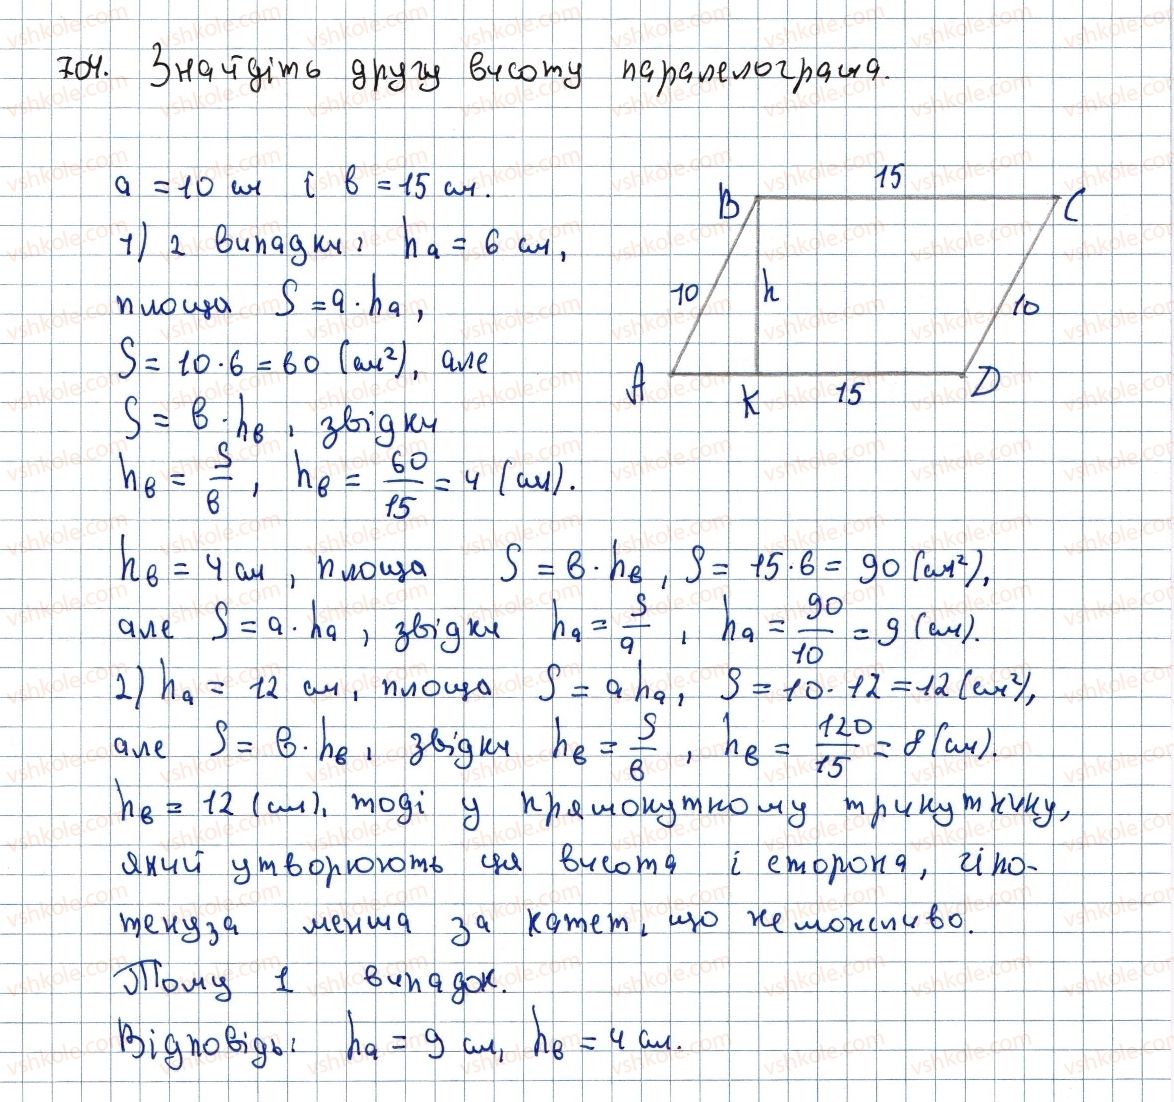 704. Знайдіть другу висоту паралелограма.
a = 10 см і b = 15 см.
1) 2 випадки: ha = 6 см,
площа S = a · ha,
S = 10 · 6 = 60 (см²), але
S = b · hb, звідки
hb = S/b, hb = 60/15 = 4 (см).
hb = 4 см, площа S = b · hb, S = 15 · 6 = 90 (см²),
але S = a · ha, звідки ha = S/a, ha = 90/10 = 9 (см).
2) ha = 12 см, площа S = a ha, S = 10 · 12 = 12 (см²),
але S = b · hb, звідки hb = S/b, hb = 120/15 = 8 (см).
hb = 12 (см), тоді у прямокутному трикутнику,
який утворюють ця висота і сторона, гіпо-
тенуза менша за катет, що неможливо.
Тому 1 випадок.
Відповідь: ha = 9 см, hb = 4 см.
15
B C
10 h 10
A K 15 D
vshkole.com